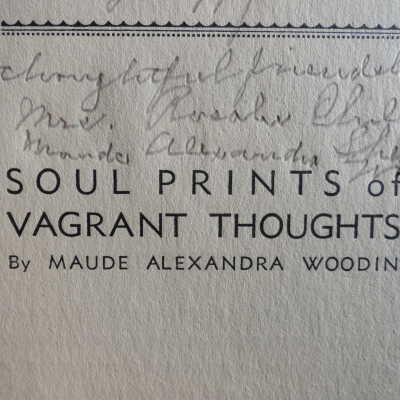 thoughtful friend
Mrs. Rosalie
Maude Alexandra
SOUL PRINTS of
VAGRANT THOUGHTS
By MAUDE ALEXANDRA WOODIN